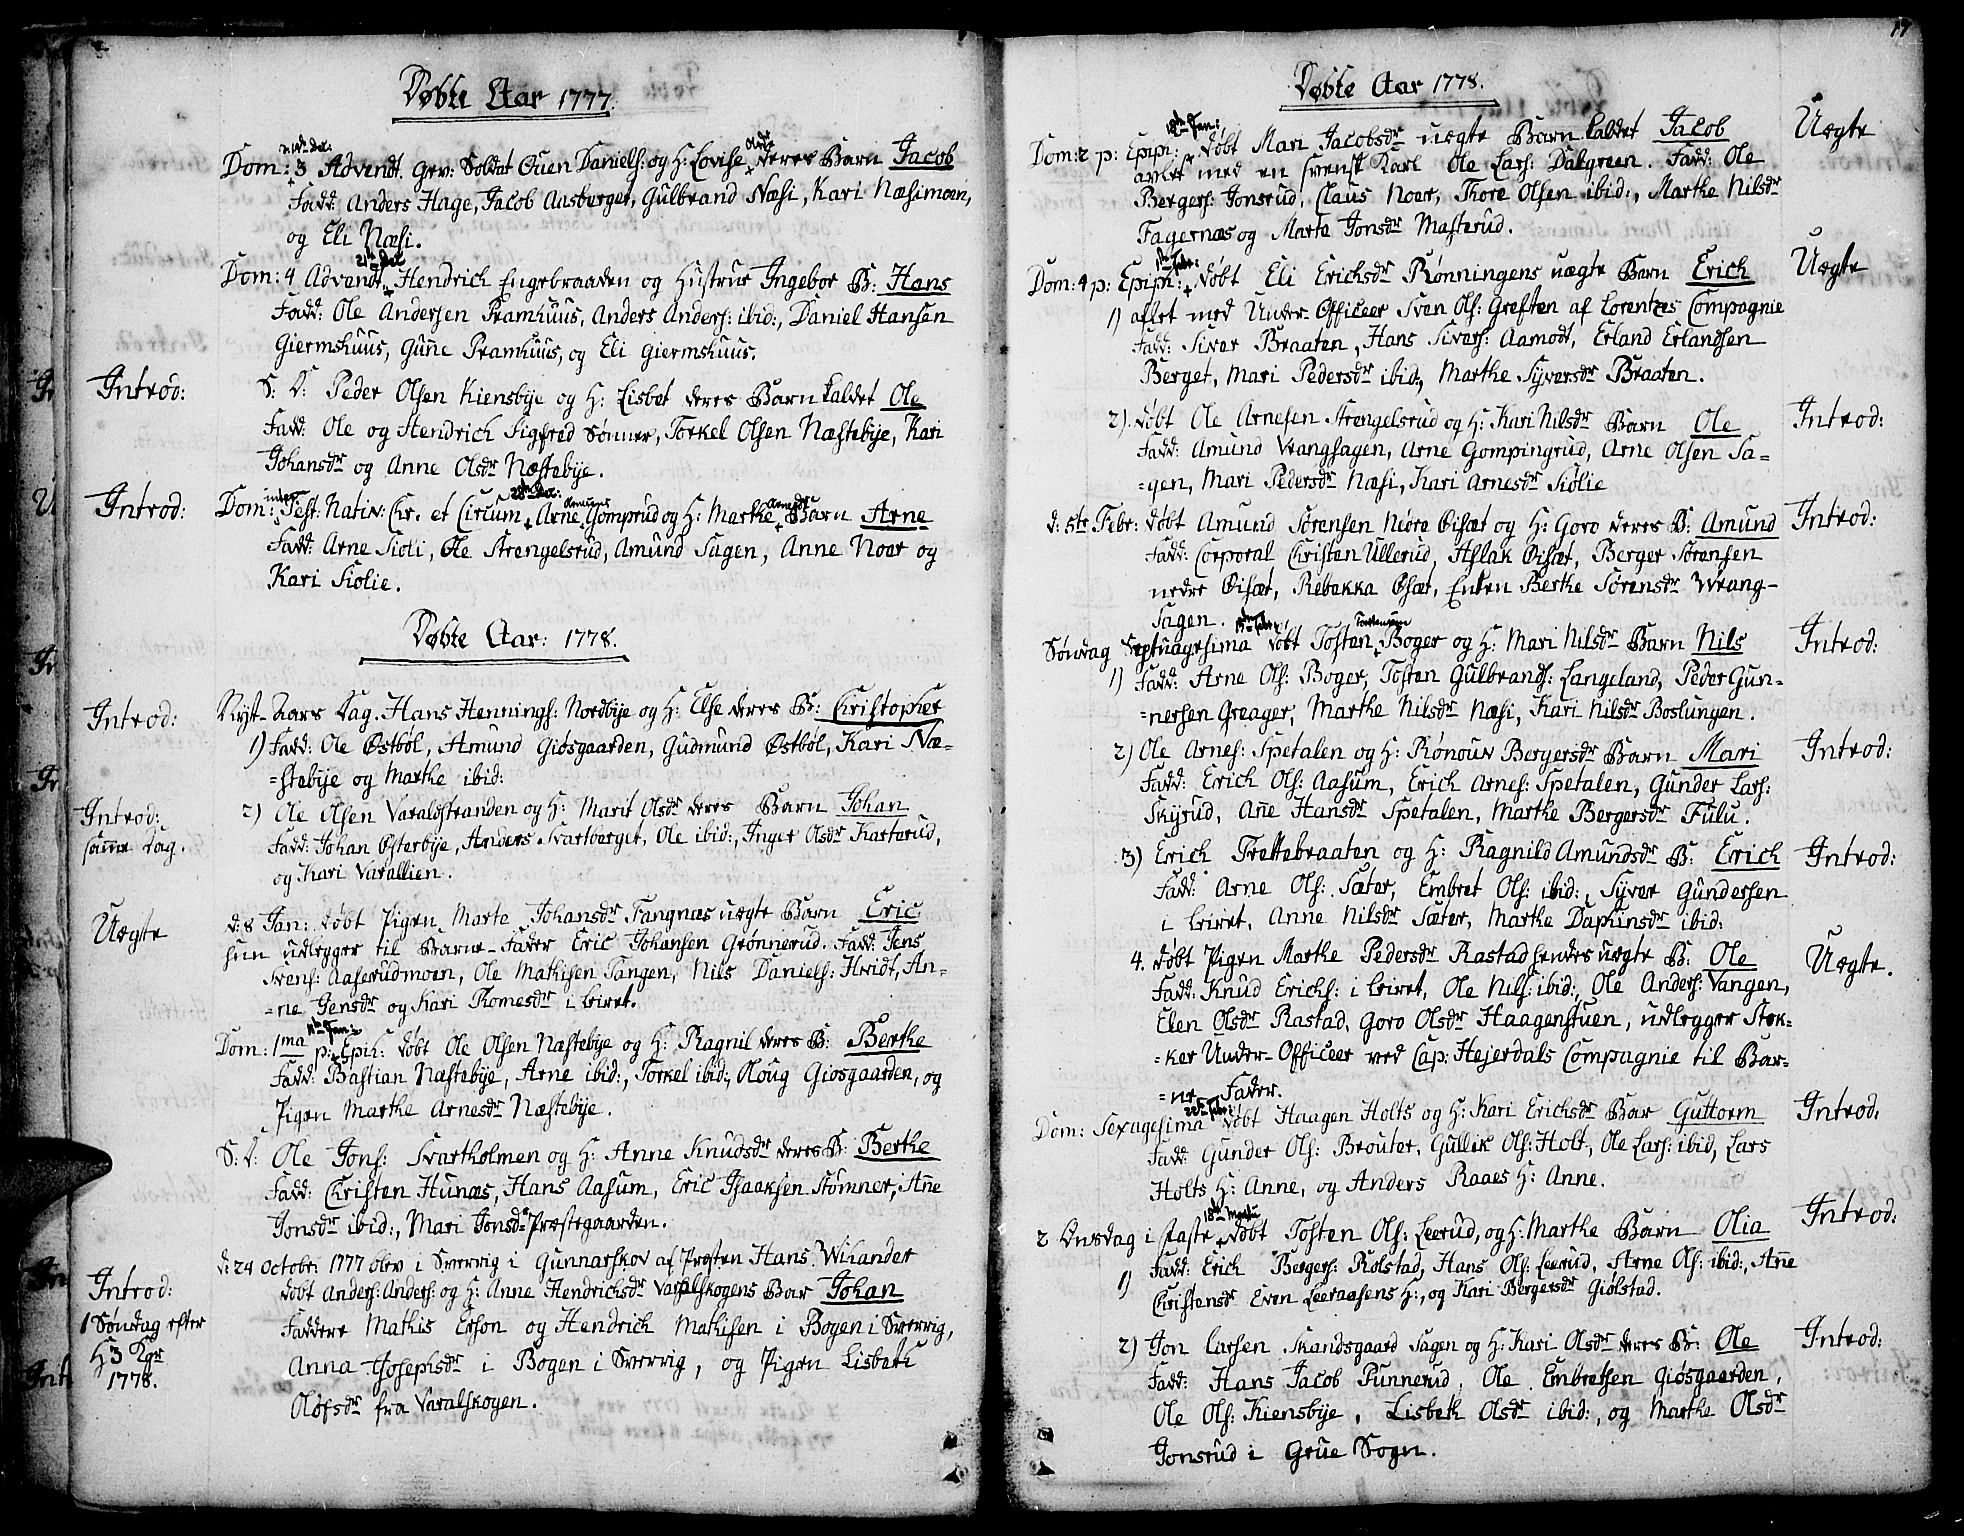 Døbte Aar 1777.
Dom: 3 Advendt. Gev: Soldat Ouen Daniels: og H: Lovise deres Barn Jacob
Fadd: Anders Hage, Jacob Aasberget, Gulbrand Næsi, Kari Næsimoen,
og Eli Næsi.
21de Dec
Dom: 4 Advendt, Hendrich Engebraaden og Hustrue Ingebor B: Hans
Fadd: Ole Andersen Pramhuus, Anders Anders: ibid:, Daniel Hansen
Giermshuus, Gune Pramhuus, og Eli Giermshuus.
Introd:
S: D: Peder Olsen Kiensbye og H: Lisbet deres Barn kaldet Ole
Fadd: Ole og Hendrich Sigfred Sønner, Torkel Olsen Næstebye, Kari
Johansdr og Anne Olsdr Næstebye.
Introd:
28de Dec:
Dom: inter Fest: Nativ: Chr. et Circum, Arne Gomprud og H: Marthe Barn Arne
Fadd: Arne Sioli, Ole Strengelsrud, Amund Sagen, Anne Noer og
Kari Siolie.
Døbte Aar: 1778.
Introd:
Nyt-Aars Dag. Hans Hennings: Nordbye og H: Else deres B: Christopher
1) Fadd: Ole Østbøl, Amund Giøsgaarden, Gudmund Østbøl, Kari Næ-
=stebye og Marthe ibid:
Introd:
samme Dag.
2) Ole Olsen Varaldstranden og H: Marit Olsdr deres Barn Johan
Fadd: Johan Østerbye, Anders Svartberget, Ole ibid:, Inger Olsdr Karterud,
og Kari Varallien.
Uægte
d: 8 Jan: døbt Pigen Marte Johansdr Tangnæs uægte Barn Eric
hun udlegger til Barne-Fader Eric Johansen Grønnerud. Fadd: Jens
Svens: Aaserudmoen, Ole Mathisen Tangen, Nils Daniels: Hvidt, An-
=ne Jensdr og Kari Romesdr i Leiret.
11te Jan:
Dom: 1ma p: Epih: døbt Ole Olsen Næstebye og H: Ragnil deres B: Berthe
Fadd: Bastian Næstebye, Arne ibid:, Torkel ibid:, Oloug Giøsgaarden, og
Pigen Marthe Arnesdr Næstebye.
S: D: Ole Jons: Svartholmen og H: Anne Knudsdr deres B: Berthe
Fadd: Christen Hunæs, Hans Aasum, Eric Isaaksen Stømner, Ane
Jonsdr ibid:, Mari Jonsdr Præstegaarden.
Introd:
1 Søndag efter
H 3 Kgr
1778.
d: 24 October 1777 blev i Sverrig i Gunnarskov af Præsten Hans: Wihander
døbt Anders: Anders: og H: Anne Hendrichsdr Varalskogens Bar Johan
Faddere Mathis Erson og Hendrich Mathisen i Bogen i Sverrig,
Anna Josephsdr i Bogen i Sverrig, og Pigen Lisbeth
Olofsdr fra Varalskogen.
17
Døbte Aar 1778.
18de Jan:
Dom: 2 p: Epiph: døbt Mari Jacobsdr uægte Barn kaldet Jacob
Uægte
avlet med en svensk Karl Ole Lars: Dalgreen. Fadd: Ole
Bergers: Jonsrud, Claus Noer, Thore Olsen ibid:, Marthe Nilsdr
Fagernæs og Marte Jonsdr Masterud.
1ste Febr:
Dom: 4 p: Epiph: døbt Eli Erichsdr Rønningens uægte Barn Erich
Uægte
1) aflet med Under-Officeer Sven Ols: Greften af Lorentzes Compagnie
Fadd: Siver Braaten, Hans Sivers: Aamodt, Erland Erlandsen
Berget, Mari Pedersdr ibid:, Marthe Syversdr Braaten.
2) døbt Ole Arnesen Strengelsrud og H: Kari Nilsdr Barn Ole
Introd:
Fadd: Amund Vranghagen, Arne Gompingrud, Arne Olsen Sa-
=gen, Mari Pedersdr Næsi, Kari Arnesdr Siolie
d: 5te Febr: døbt Amund Sørensen Nidre Øiset og H: Goro deres B: Amund
Introd:
Fadd: Corporal Christen Ullerud, Aslak Øiset, Berger Sørensen
nedre Øiset, Rebekka Øset, Enken Berthe Sørensdr Wrang-
Sagen.
Søndag Septuagesima døbt Tosten Boger og H: Mari Nilsdr Barn Nils
Introd:
1) Fadd: Arne Ols: Boger, Tosten Gulbrands: Langeland, Peder Gun-
=nersen Greager, Marthe Nilsdr Næsi, Kari Nilsdr Boslungen.
2) Ole Arnes: Spetalen og H: Rønouv Bergersdr Barn Mari
Introd:
Fadd: Erich Ols: Aasum, Erich Arnes: Spetalen, Gunder Lars:
Skyrud, Ane Hansdr Spetalen, Marthe Bergersdr Fulu.
3) Erich Trettebraaten og H: Ragnild Amundsdr B: Erich
Introd:
Fadd: Arne Ols: Sæter, Embret Ols: ibid:, Syver Gundersen
i Leiret, Anne Nilsdr Sæter, Marthe Dapkinsdr ibid:
4. døbt Pigen Marthe Pedersdr Rastad hendes uægte B: Ole
Uægte.
Fadd: Knud Erichs: i Leiret, Ole Nils: ibid:, Ole Anders: Vangen,
Elen Olsdr Rastad, Goro Olsdr Haagenstuen, udlegger Stok-
=ker Under-Officeer ved Cap: Hejerdals Compagnie til Bar-
=ne-Fader.
22de Febr:
Dom: Sexagesima døbt Haagen Holts og H: Kari Erichsdr Bar Guttorm
Introd:
Fadd: Gunder Ols: Brouter, Gullik Ols: Holt, Ole Lars: ibid, Lars
Holts H: Anne, og Anders Raaes H: Anne.
18de Martii
2 Onsdag i Faste døbt Tosten Ols: Leerud, og H: Marthe Barn Olia
Introd:
1) Fadd: Erich Bergers: Rolstad, Hans Ols: Leerud, Arne Ols: ibid:, Ane
Christensdr Even Leeraasens H:, og Kari Bergersdr Giølstad.
2) Jon Larsen Skandsgaard Sagen og H: Kari Olsdr deres B: Ole
Introd:
Fadd: Hans Jacob Punnerud, Ole Embretsen Giøsgaarden,
Ole Ols: Kiensbye, Lisbeth Olsdr ibid:, og Marthe Olsdr
Jonsrud i Grue Sogn.